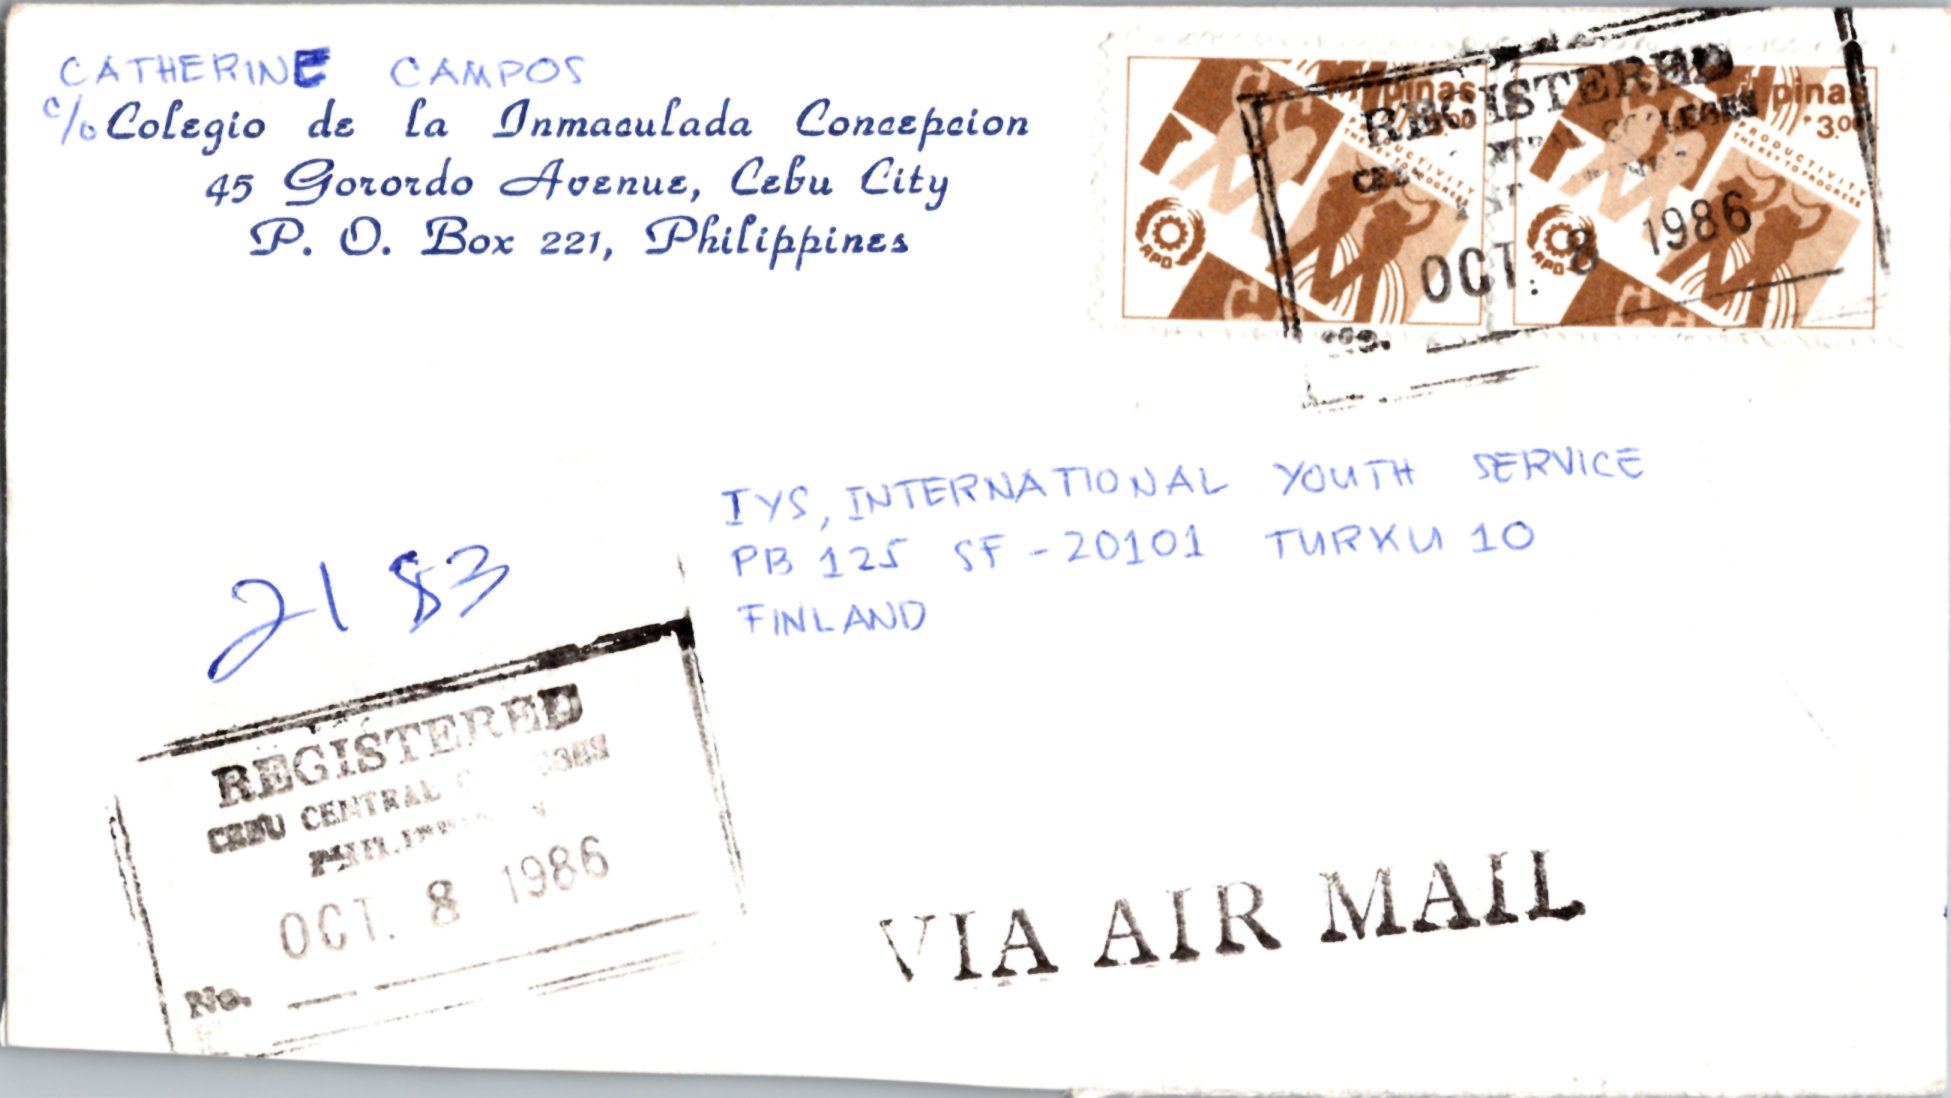 CATHERINE CAMPOS
c/o Colegio de la Inmaculada Concepcion
45 Gorordo Avenue, Cebu City
P. O. Box 221, Philippines
Pilipinas
PRODUCTIVITY
THE KEY TO PROGRESS
APO
Pilipinas
3.00
PRODUCTIVITY
THE KEY TO PROGRESS
APO
REGISTERED
OCT. 8 1986
No.
IYS, INTERNATIONAL YOUTH SERVICE
PB 125 SF-20101 TURKU 10
FINLAND
2183
REGISTERED
CEBU CENTRAL
OCT. 8 1986
No.
VIA AIR MAIL